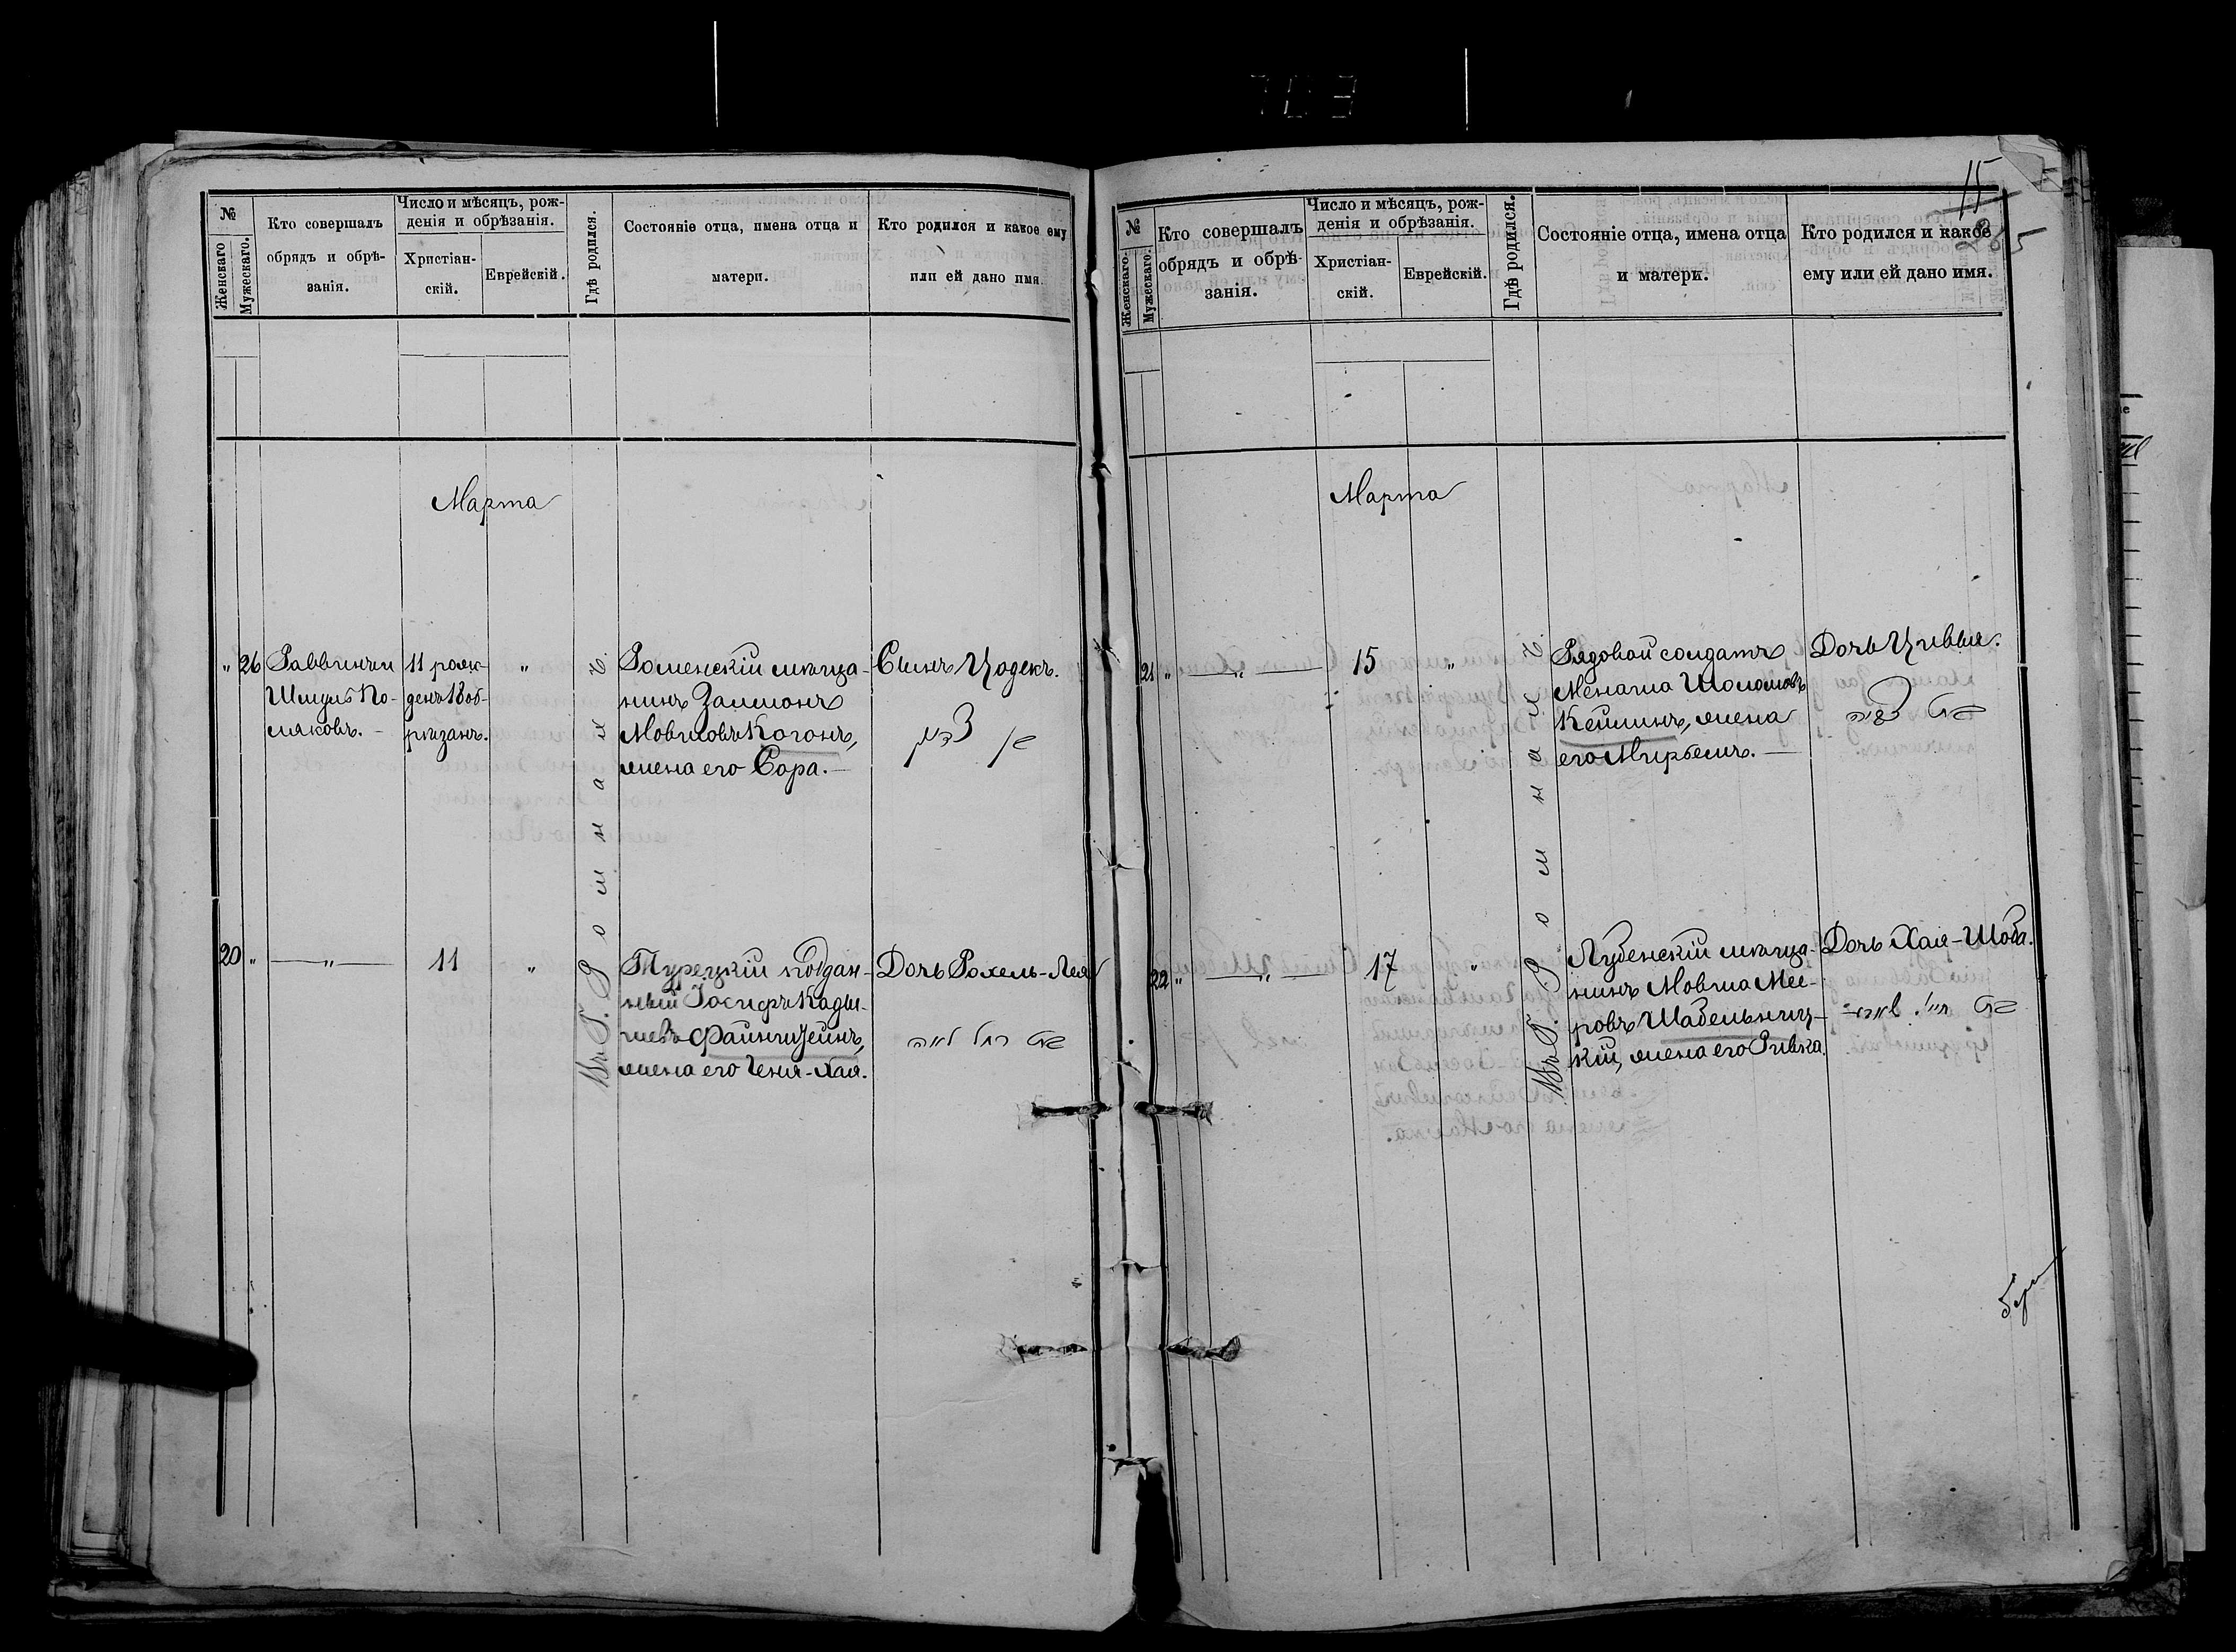 №
Женскаго
Мужескаго.
Кто совершалъ
обрядъ и обрѣ-
занія.
Число и мѣсяцъ, рож-
денія и обрѣзанія.
Христіан-
скій.
Еврейскій.
Гдѣ родился.
Состояніе отца, имена отца и
матери.
Кто родился и какое ему
или ей дано имя.
Марта
" 26
Раввинъ
Шмуль По-
ляковъ. -
11 рож-
денъ 18 об-
рѣзанъ.
"
Въ Г. Ромнахъ.
Роменскій мѣща-
нинъ Залмонъ
Мовшовъ Когонъ,
жена его Сора. —
Сынъ Цодекъ.
בן צדיק
20 "
— " —
11
"
Турецкій поддан-
ный Іосифъ Кады-
шевъ Файнштейнъ,
жена его Геня-Хая.
Дочь Рохель-Лея
בת רחל לאה
15
№
Женскаго.
Мужескаго.
Кто совершалъ
обрядъ и обрѣ-
занія.
Число и мѣсяцъ, рож-
денія и обрѣзанія.
Христіан-
скій.
Еврейскій.
Гдѣ родился.
Состояніе отца, имена отца
и матери.
Кто родился и какое
ему или ей дано имя.
Марта
21 "
— " —
15
"
Въ Г. Ромнахъ.
Рядовой солдатъ
Менаша Шоломовъ
Кейлинъ, жена
его Мирьемъ. —
Дочь Цивья.
בת צביה
22 "
— " —
17
"
Лубенскій мѣща-
нинъ Мовша Мее-
ровъ Шабельниц-
кій, жена его Ривка.
Дочь Хая-Шоба.
בת חי'